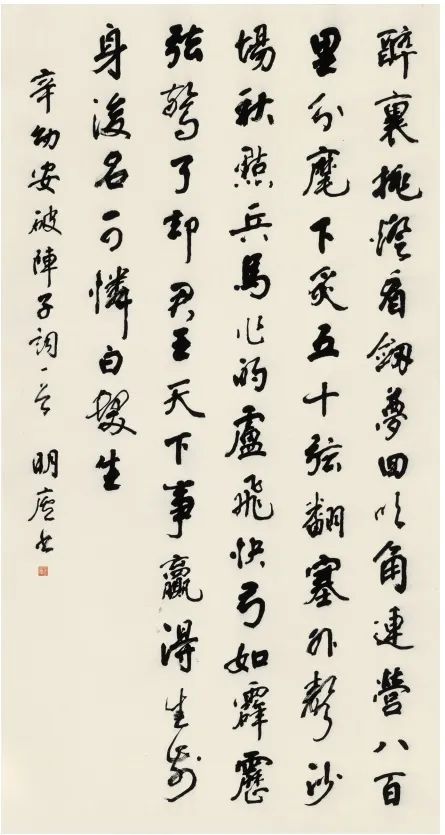 醉裏挑燈看劍夢回吹角連營八百
里分麾下炙五十弦翻塞外聲沙
場秋點兵馬作的盧飛快弓如霹靂
弦驚了却君王天下事贏得生前
身後名可憐白髮生
辛幼安破陣子詞一首 明書